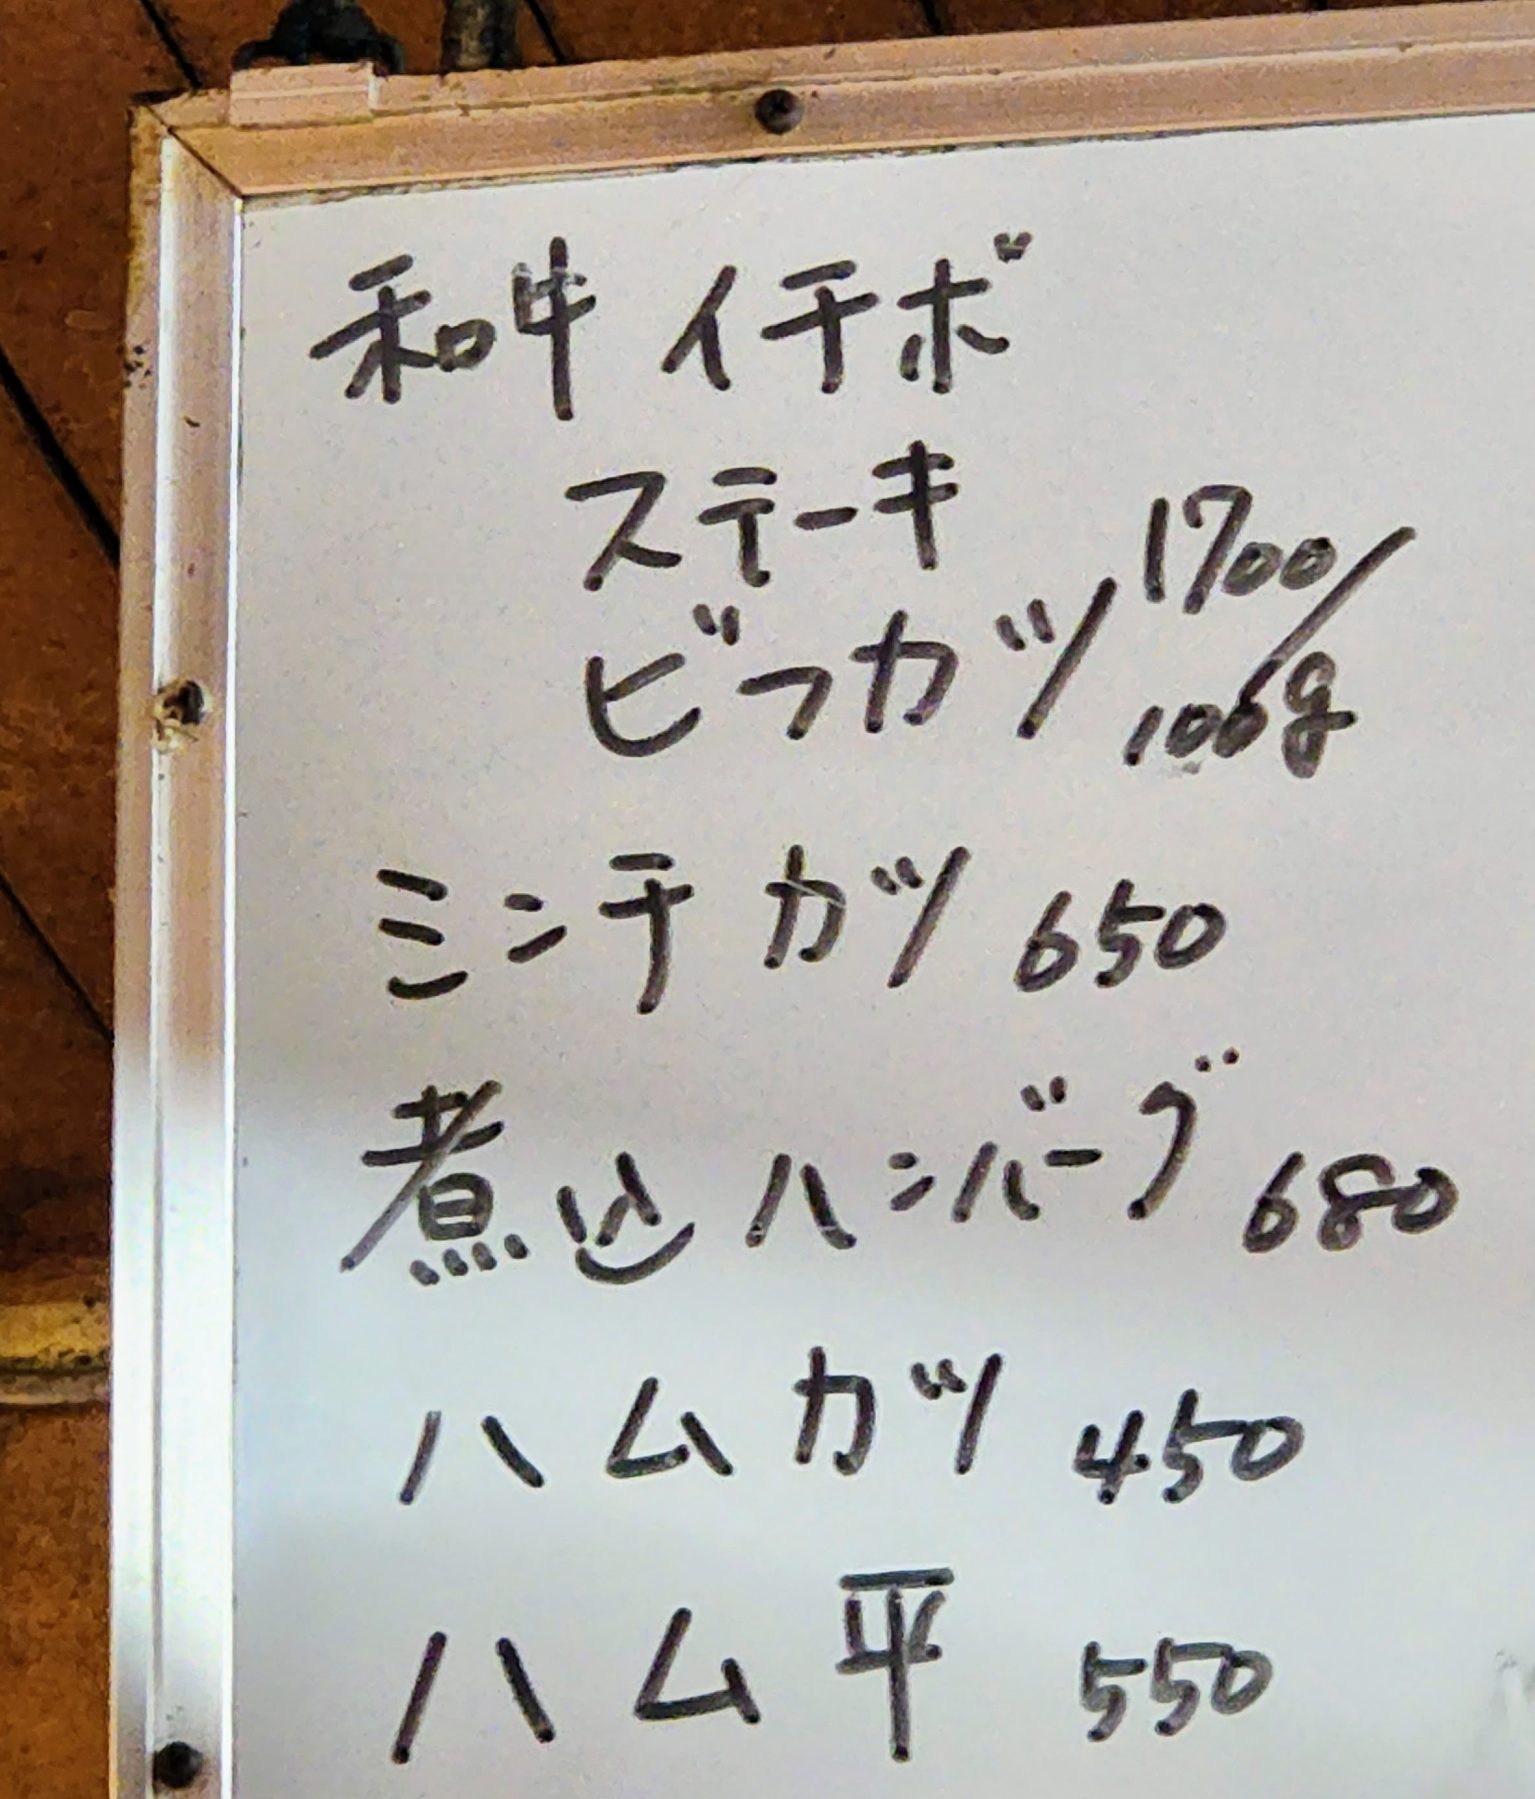 和牛イチボ
ステーキ
ビフカツ 1700/100g
ミンチカツ 650
煮込ハンバーグ 680
ハムカツ 450
ハム平 550